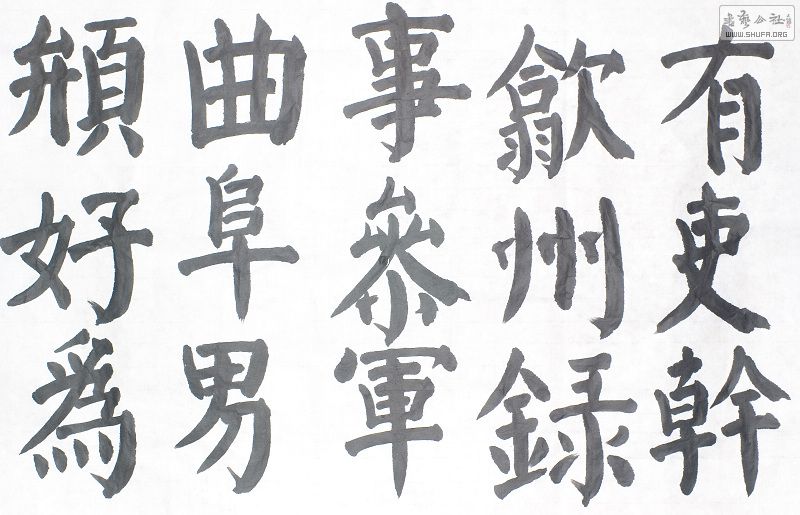 有吏幹
歙州録
事參軍
曲阜男
頩好爲
書藝公社
WWW.SHUFA.ORG